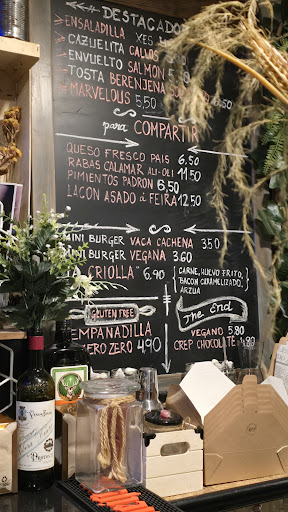 DESTACADO
ENSALADILLA XES
CAZUELITA CALLOS
ENVUELTO SALMON
TOSTA BERENJENA
MARVELOUS 5,50
para COMPARTIR
QUESO FRESCO PAIS 6.50
RABAS CALAMAR ALI-OLI 11.50
PIMIENTOS PADRON 6.50
LACON ASADO á FEIRA 12.50
MINI BURGER VACA CACHENA 3.50
MINI BURGER VEGANA 3.60
CRIOLLA" 6.90
CARNE, HUEVO FRITO,
BACON CARAMELIZADO,
ARZUA
GLUTEN FREE
The End
EMPANADILLA
ZERO 4,90
VEGANO 5.80
CREP CHOCOLATE 4.80